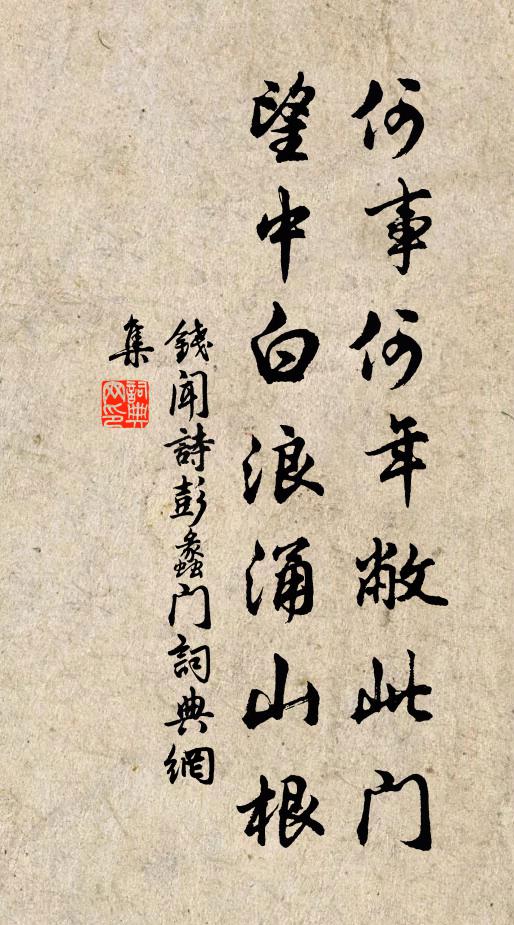 何事何年敞此门
望中白浪涌山根
錢闻詩彭蠡门詞典網
集
詞典
网印